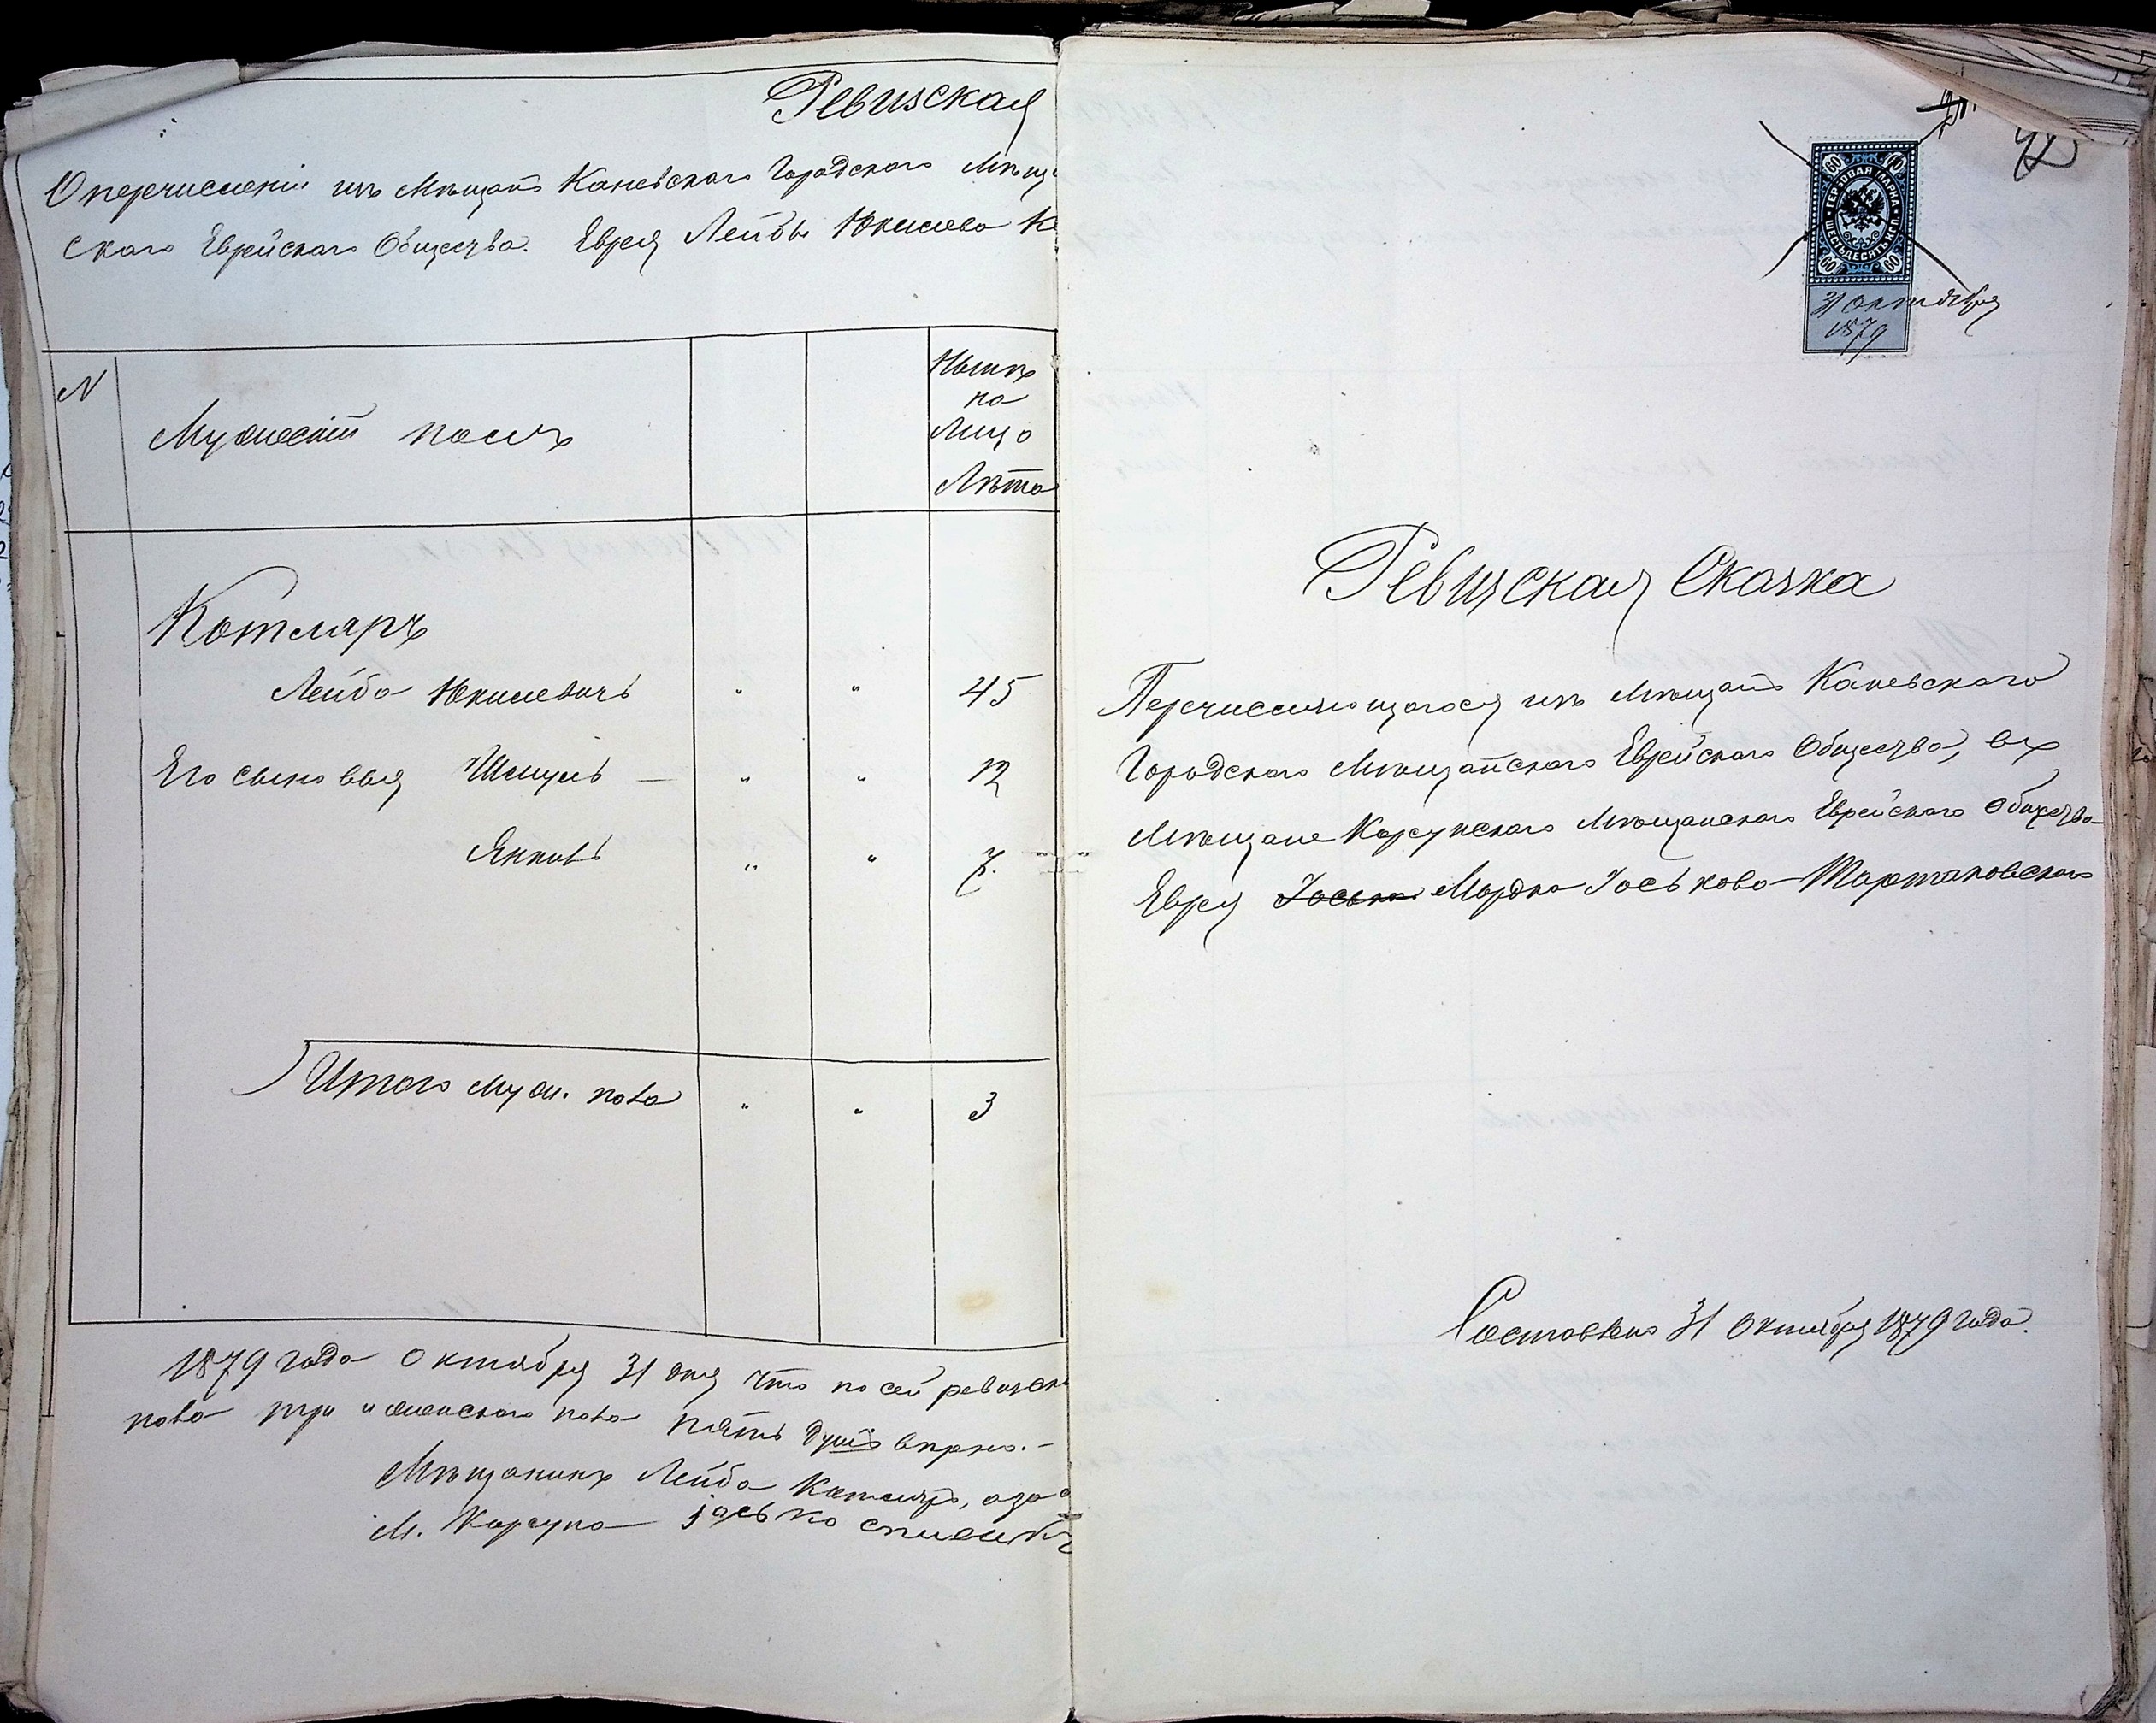 Ревизская
О перечисленіи изъ Мѣщанъ Каневскаго Городскаго Мѣща
скаго Еврейскаго Общества. Еврея Лейбы Юкилева К
N
Мужескій полъ
Нынѣ
на
Лицо
Лѣта
Котляръ
Лейба Юкилевичъ " " 45
Его сыновья Шмуль — " " 12
Янкель " " 7.
Итого муж. пола " " 3
1879 года Октября 31 дня что по сей ревизск
пола три и женскаго пола пять душъ вѣрно. -
Мѣщанинъ Лейба Котляръ, а за
М. Корсуна іосько
60 60
ГЕРБОВАЯ МАРКА
ШЕСТЬДЕСЯТЪ КОП.
60 60
31 Октября
1879
Ревизская Сказка
Перечисляющагося изъ Мѣщанъ Каневскаго
Городскаго Мѣщанскаго Еврейскаго Общества, въ
Мѣщане Корсунскаго Мѣщанскаго Еврейскаго Общества
Еврея Іоська Мордка Іоськова Тартаковскаго
Составлена 31 Октября 1879 года.